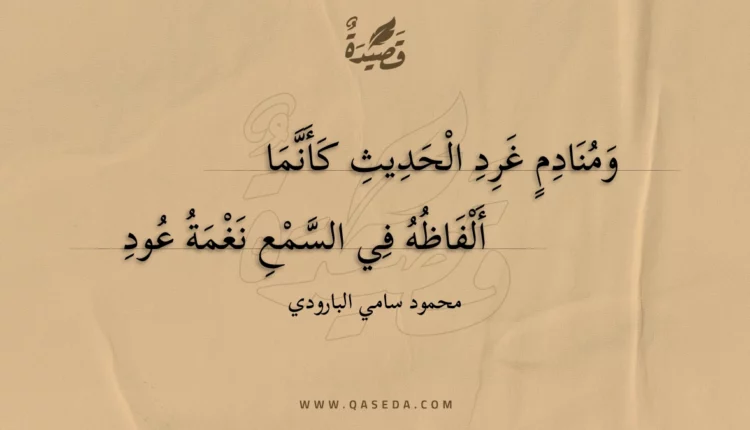 قَصِيدَةٌ
وَمُنَادِمٍ غَرِدِ الْحَدِيثِ كَأَنَّمَا
أَلْفَاظُهُ فِي السَّمْعِ نَغْمَةُ عُودِ
محمود سامي البارودي
WWW.QASEDA.COM